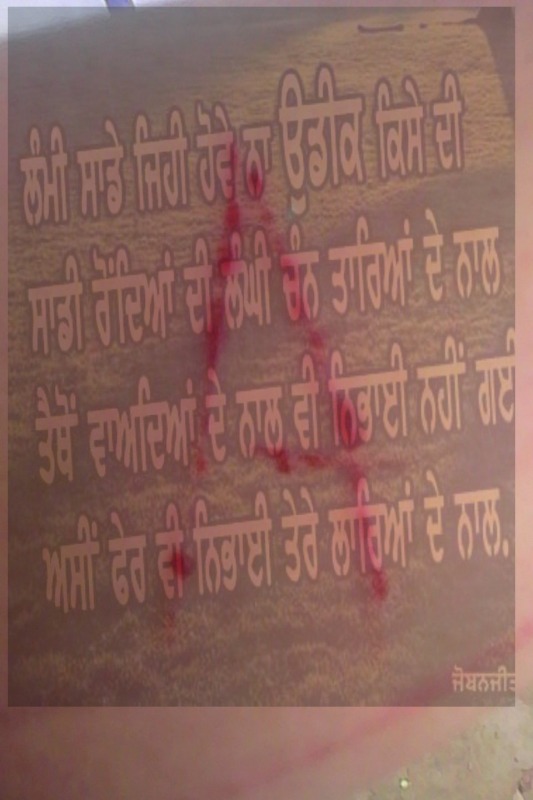 ਲੰਮੀ ਸਾਡੇ ਜਿਹੀ ਹੋਵੇ ਨਾ ਉਡੀਕ ਕਿਸੇ ਦੀ
ਸਾਡੀ ਰੋਂਦਿਆਂ ਦੀ ਲੰਘੀ ਚੰਨ ਤਾਰਿਆਂ ਦੇ ਨਾਲ
ਤੈਥੋਂ ਵਾਅਦਿਆਂ ਦੇ ਨਾਲ ਵੀ ਨਿਭਾਈ ਨਹੀਂ ਗਈ
ਅਸੀਂ ਫੇਰ ਵੀ ਨਿਭਾਈ ਤੇਰੇ ਲਾਰਿਆਂ ਦੇ ਨਾਲ.
ਜੋਬਨਜੀਤ
A